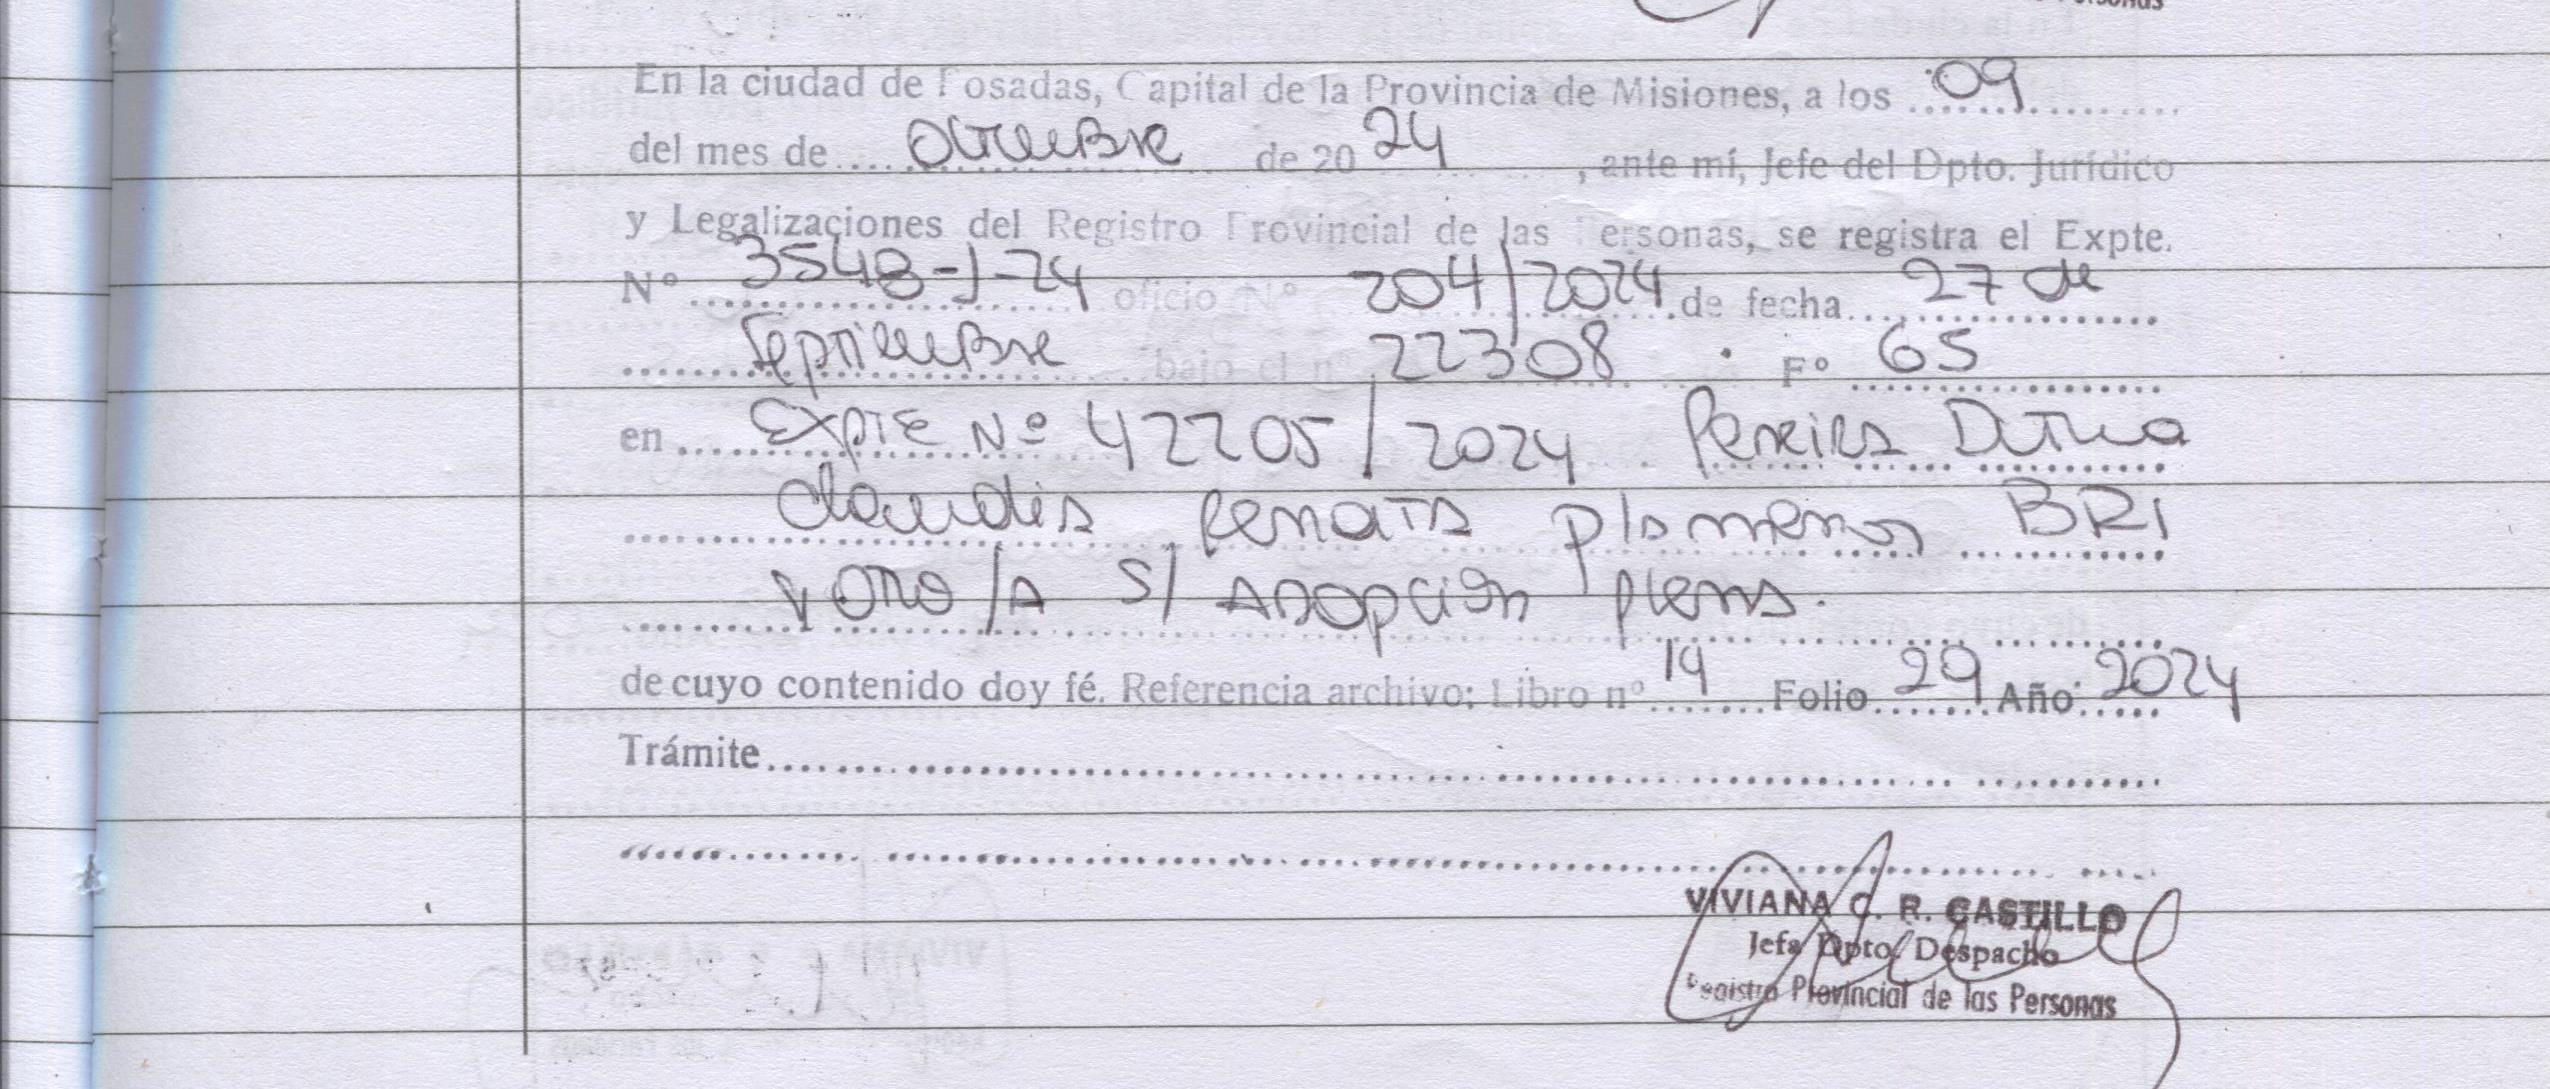 Personas
En la ciudad de Posadas, Capital de la Provincia de Misiones, a los 09
del mes de octubre de 20 24, ante mí, Jefe del Dpto. Jurídico
y Legalizaciones del Registro Provincial de las Personas, se registra el Expte.
Nº 3548-J-24 oficio Nº 204/2024 de fecha 27 de
septiembre bajo el nº 22308 Fº 65
en Expte Nº 42205/2024 Pereira Dutra
Claudia Renata p/s menor BRI
y otro/a s/ Adopción plena.
de cuyo contenido doy fé. Referencia archivo: Libro nº 14 Folio 29 Año 2024
Trámite
VIVIANA C. R. CASTILLO
Jefa Dpto. Despacho
Registro Provincial de las Personas